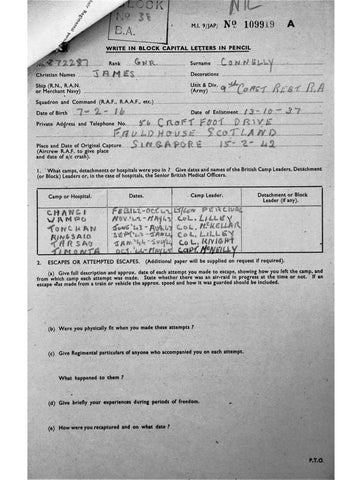 BLOCK
Nº 38
B.A.
NIL
M.I. 9/JAP) Nº 109919 A
WRITE IN BLOCK CAPITAL LETTERS IN PENCIL.
872287 Rank GNR Surname CONNELLY
Christian Names JAMES Decorations
Ship (R.N., R.A.N. or Merchant Navy) Unit & Div. (Army) 9th COAST REGT R.A
Squadron and Command (R.A.F., R.A.A.F., etc.)
Date of Birth 7-2-16 Date of Enlistment 13-10-37
Private Address and Telephone No. 56 CROFT FOOT DRIVE
FAULDHOUSE SCOTLAND
Place and Date of Original Capture SINGAPORE 15-2-42
(Aircrew R.A.F. to give place and date of a/c crash).
1. What camps, detachments or hospitals were you in ? Give dates and names of the British Camp Leaders, Detachment (or Block) Leaders or, in the case of hospitals, the Senior British Medical Officers.
Camp or Hospital. Dates. Camp Leader. Detachment or Block Leader (if any).
CHANGI PERCIVAL
WAMPO COL. LILLEY
TONCHAN COL. McKELLAR
RINGSAID COL. LILLEY
TARSAO COL. KNIGHT
TIMONTA CAPT McNEILLY
2. ESCAPES OR ATTEMPTED ESCAPES. (Additional paper will be supplied on request if required).
(a) Give full description and approx. date of each attempt you made to escape, showing how you left the camp, and from which camp each attempt was made. State whether there was an air-raid in progress at the time or not. If an escape was made from a train or vehicle the approx. speed and how it was guarded should be included.
(b) Were you physically fit when you made these attempts ?
(c) Give Regimental particulars of anyone who accompanied you on each attempt.
What happened to them ?
(d) Give briefly your experiences during periods of freedom.
(e) How were you recaptured and on what date ?
P.T.O.